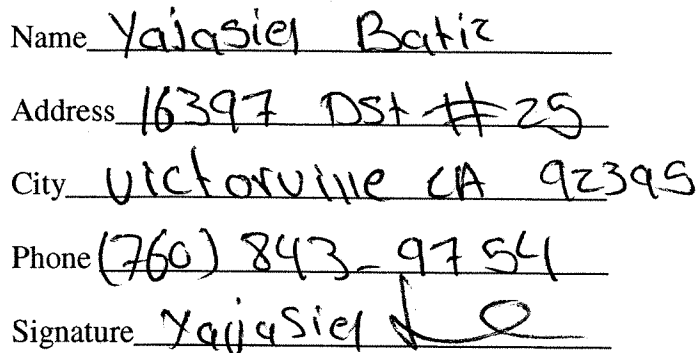 Name Yajasiel Batiz
Address 16397 DSt #25
City Victorville CA 92395
Phone (760) 843-9754
Signature Yajasiel